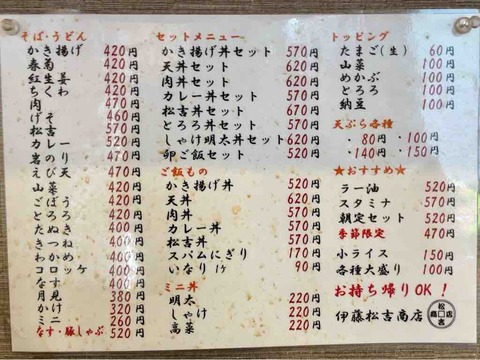 そば・うどん
かき揚げ 420円
春菊 420円
紅生姜 420円
ちくわ 420円
肉 470円
げそ 460円
松吉 470円
カレー 520円
岩のり 470円
えび天 470円
山菜 420円
ごぼう 400円
とろろ 420円
たぬき 400円
きつね 400円
わかめ 400円
コロッケ 400円
なす 400円
月見 380円
かけ 320円
ミニ 260円
なす・豚しゃぶ 520円
セットメニュー
かき揚げ丼セット 570円
天丼セット 570円
肉丼セット 570円
カレー丼セット 570円
松吉丼セット 570円
とろろ丼セット 570円
しゃけ明太丼セット 630円
卵ご飯セット 470円
ご飯もの
かき揚げ丼 520円
天丼 520円
肉丼 520円
カレー丼 520円
松吉丼 520円
スパムにぎり 170円
いなり 1ケ 90円
ミニ丼
明太 220円
しゃけ 220円
高菜 220円
トッピング
たまご(生) 60円
山菜 100円
めかぶ 100円
とろろ 100円
納豆 100円
天ぷら各種
・80円 ・100円
・140円 ・150円
★おすすめ★
ラー油 520円
スタミナ 570円
朝定セット 520円
季節限定 470円
小ライス 150円
各種大盛り 100円
お持ち帰りOK！
伊藤松吉商店
松吉商店